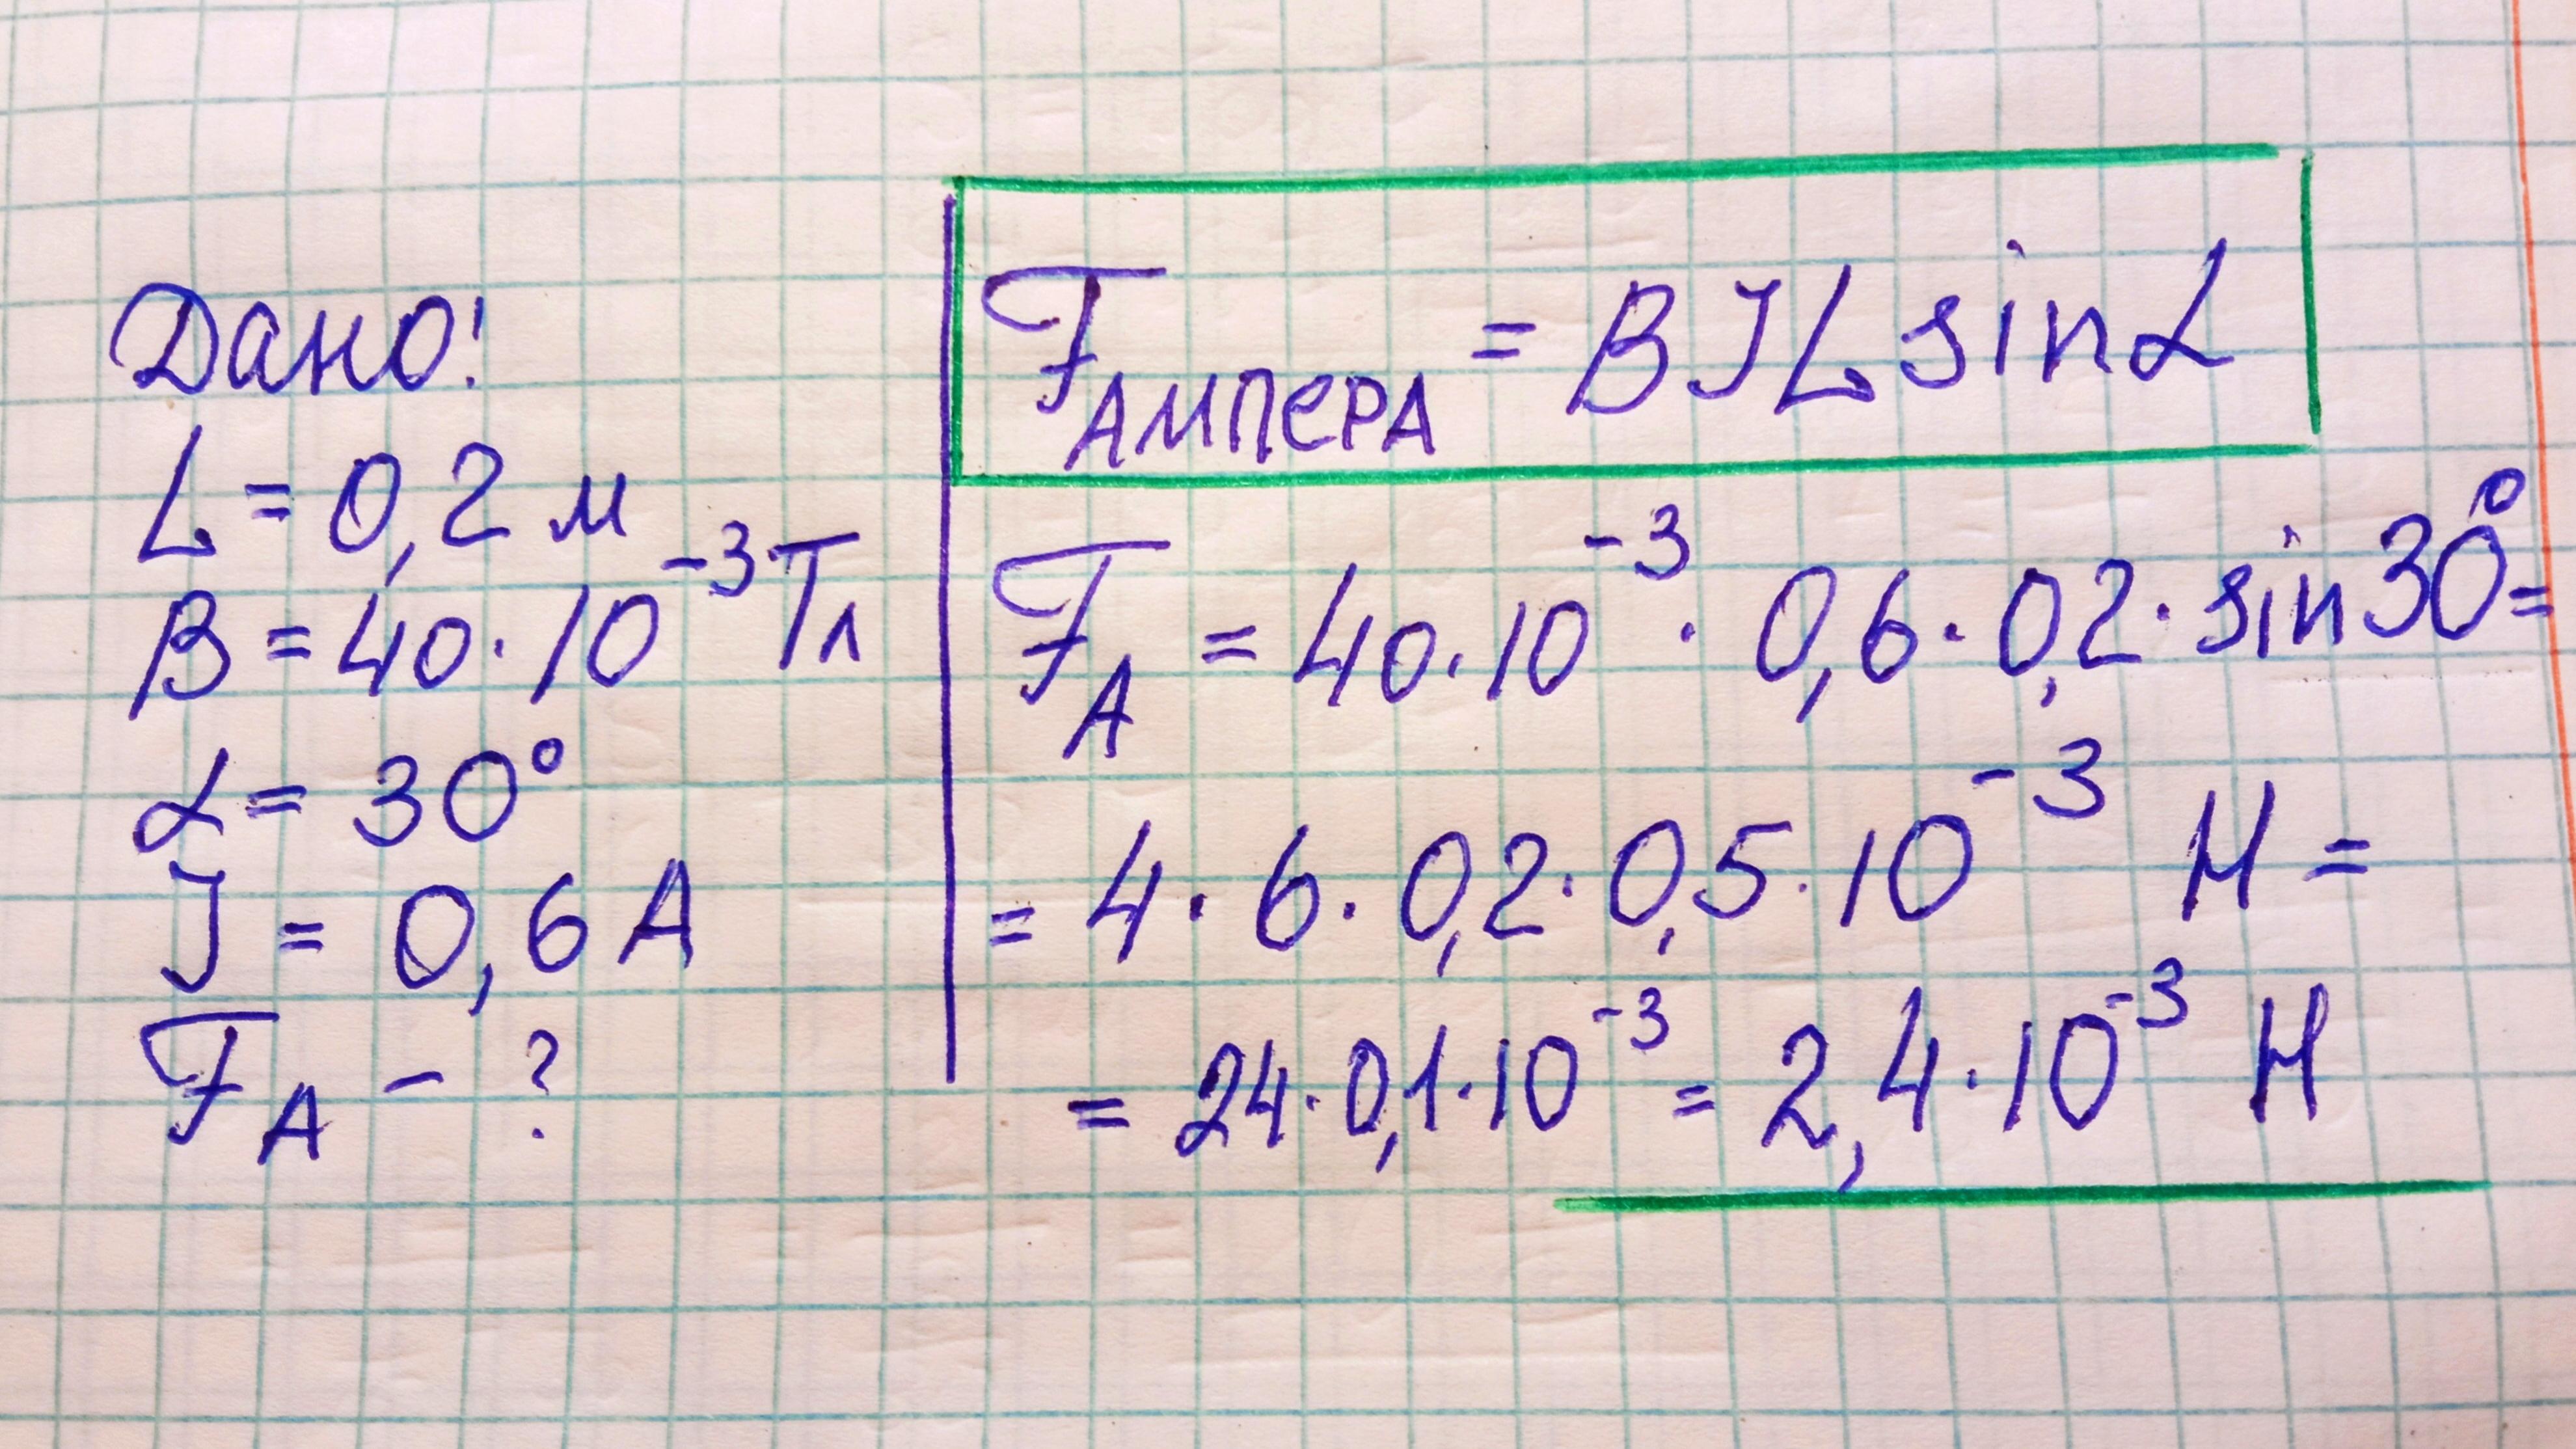 Дано:
L = 0,2 м
B = 40·10⁻³ Тл
α = 30°
J = 0,6 А
F_А - ?
F_Ампера = BJL sinα
F_А = 40·10⁻³ · 0,6 · 0,2 · sin30° =
= 4 · 6 · 0,2 · 0,5 · 10⁻³ Н =
= 24 · 0,1 · 10⁻³ = 2,4 · 10⁻³ Н